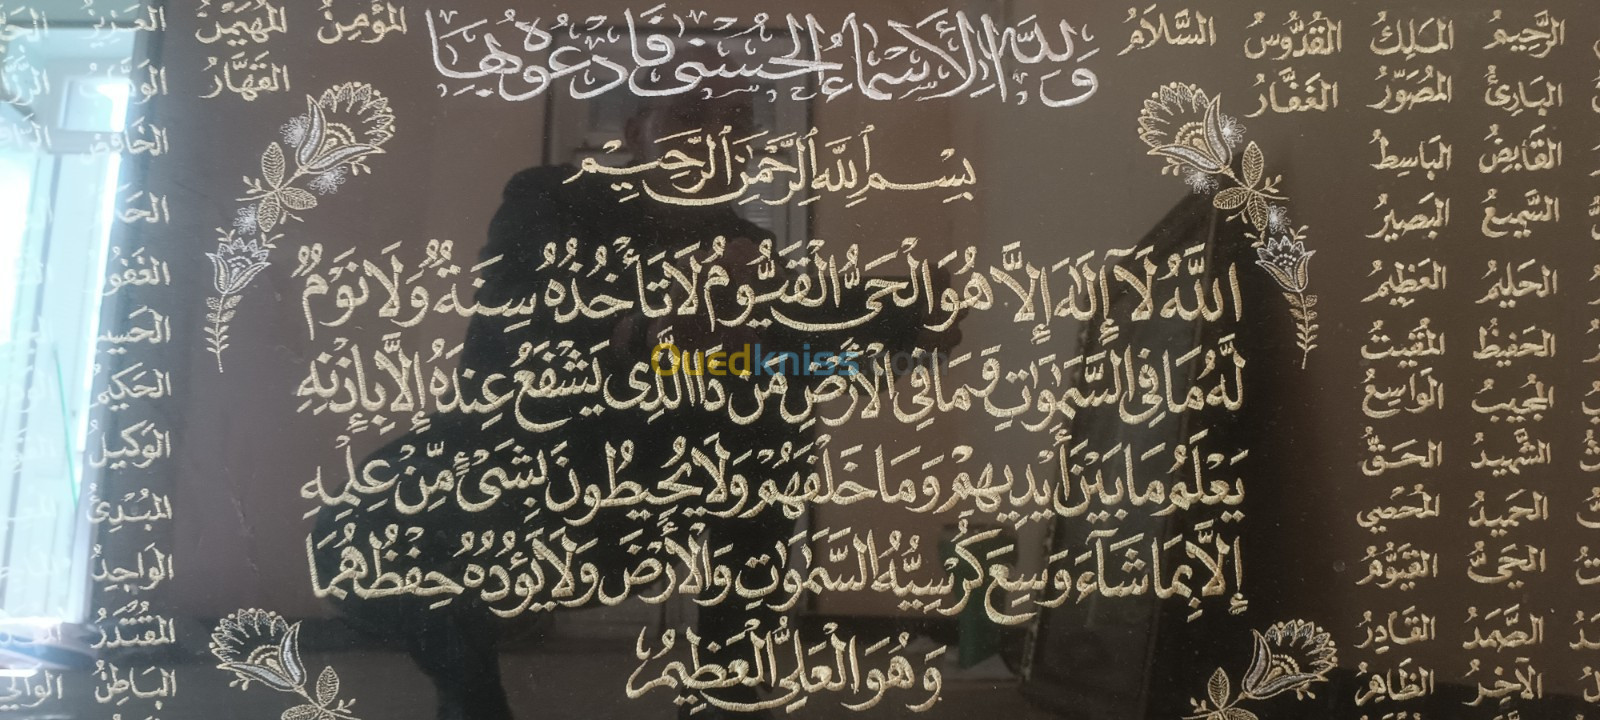 ولله الأسماء الحسنى فادعوه بها
الرَّحِيمُ المَلِكُ القُدُّوسُ السَّلَامُ
المُؤْمِنُ المُهَيْمِنُ العَزِيزُ
البَارِئُ المُصَوِّرُ الغَفَّارُ
القَهَّارُ
بِسْمِ اللَّهِ الرَّحْمَٰنِ الرَّحِيمِ
القَابِضُ البَاسِطُ
الخَافِضُ
السَّمِيعُ البَصِيرُ
الحَلِيمُ العَظِيمُ
الغَفُورُ
اللَّهُ لَآ إِلَٰهَ إِلَّا هُوَ الْحَيُّ الْقَيُّومُ لَا تَأْخُذُهُ سِنَةٌ وَلَا نَوْمٌ
الحَفِيظُ المُقِيتُ
لَّهُ مَا فِي السَّمَٰوَٰتِ وَمَا فِي الْأَرْضِ مَن ذَا الَّذِي يَشْفَعُ عِندَهُ إِلَّا بِإِذْنِهِ
المُجِيبُ الوَاسِعُ
الحَكِيمُ
Ouedkniss.com
الشَّهِيدُ الحَقُّ
الوَكِيلُ
يَعْلَمُ مَا بَيْنَ أَيْدِيهِمْ وَمَا خَلْفَهُمْ وَلَا يُحِيطُونَ بِشَيْءٍ مِّنْ عِلْمِهِ
الحَمِيدُ المُحْصِي
المُبْدِئُ
إِلَّا بِمَا شَآءَ وَسِعَ كُرْسِيُّهُ السَّمَٰوَٰتِ وَالْأَرْضَ وَلَا يَؤُدُهُ حِفْظُهُمَا
الحَيُّ القَيُّومُ
الوَاجِدُ
الصَّمَدُ القَادِرُ
المُقْتَدِرُ
وَهُوَ الْعَلِيُّ الْعَظِيمُ
الآخِرُ الظَّاهِرُ
البَاطِنُ